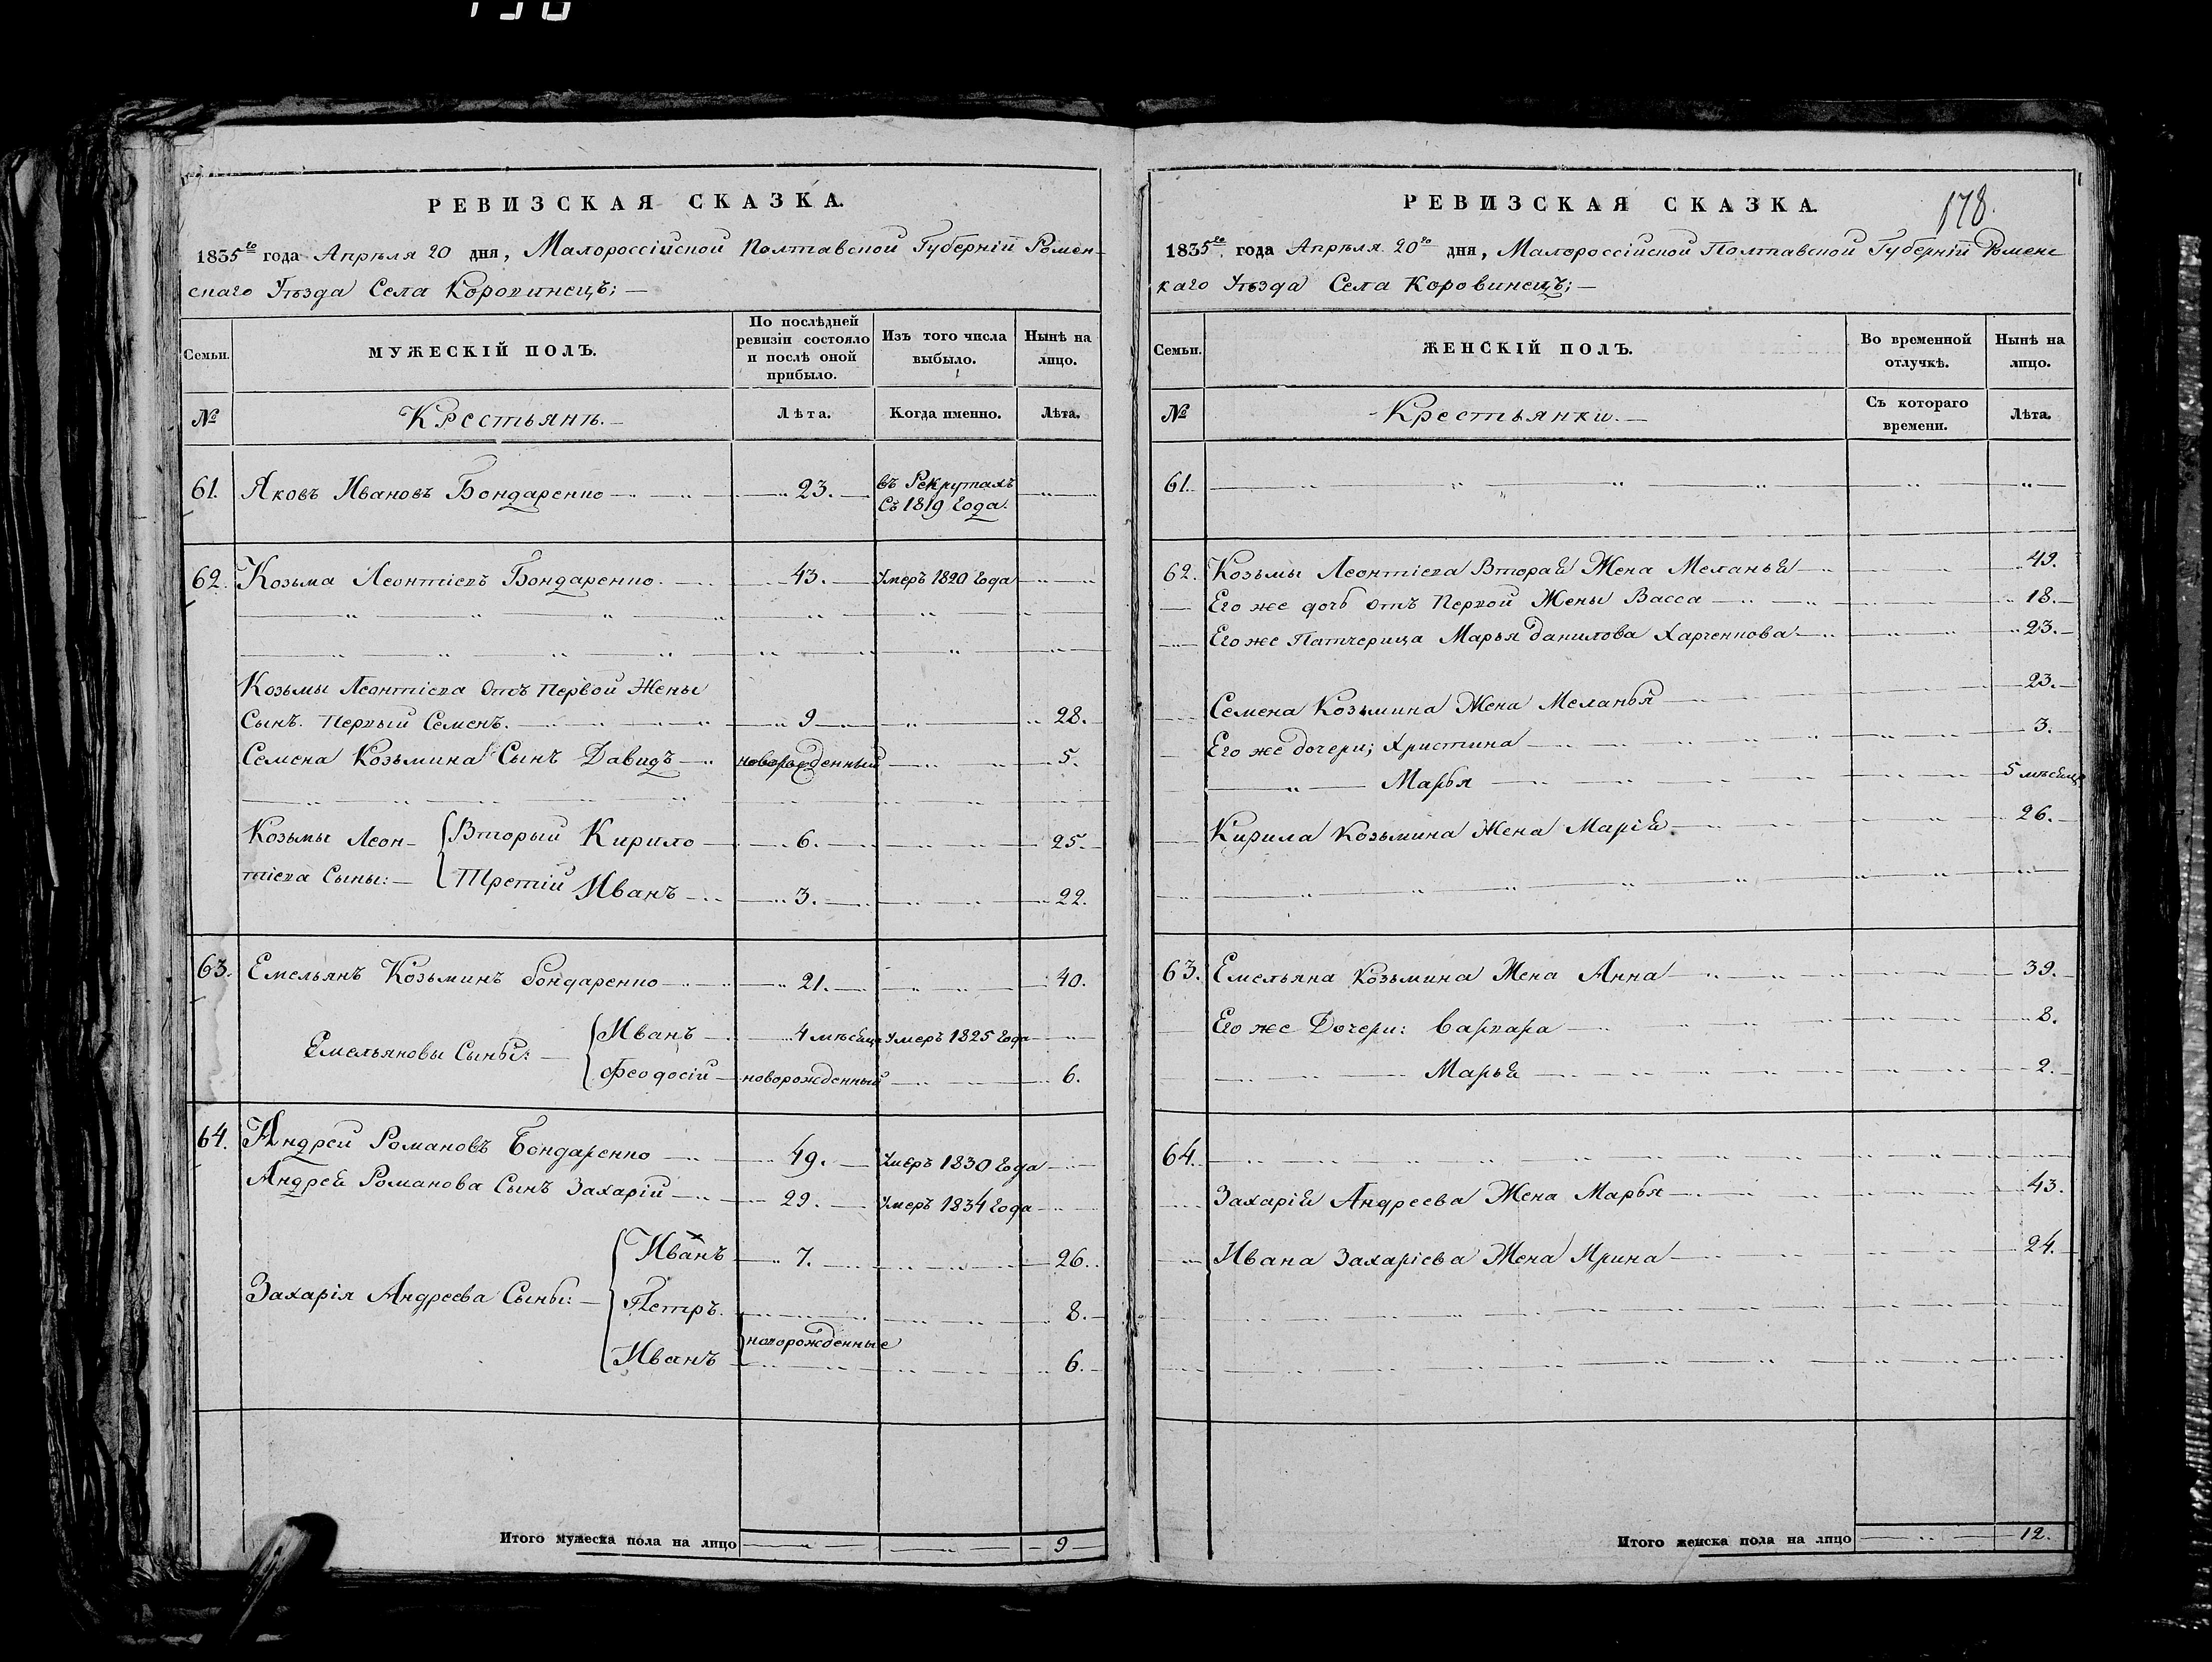 РЕВИЗСКАЯ СКАЗКА.
1835го года Апрѣля 20 дня, Малороссійской Полтавской Губерніи Ромен-
скаго Уѣзда Села Коровинецъ; —
Семьи.
МУЖЕСКІЙ ПОЛЪ.
По послѣдней
ревизіи состояло
и послѣ оной
прибыло.
Изъ того числа
выбыло.
Нынѣ на
лицо.
№
Крестьянѣ. —
Лѣта.
Когда именно.
Лѣта.
61. Яковъ Ивановъ Бондаренко 23. въ Рекрутахъ
Съ 1819 Года.
62. Козьма Леонтіевъ Бондаренко. 43. Умеръ 1820 Года
Козьмы Леонтіева Отъ Первой Жены
Сынъ. Первый Семенъ. 9 28.
Семена Козьмина Сынъ Давидъ новорожденный 5.
Козьмы Леон- Вторый Кирило 6. 25.
тіева Сыны: — Третій Иванъ 3. 22.
63. Емельянъ Козьминъ Бондаренко 21. 40.
Иванъ 4 мѣсяца Умеръ 1825 Года
Емельяновы Сыны: —
Феодосій новорожденный 6.
64. Андрей Романовъ Бондаренко 49. Умеръ 1830 Года
Андрея Романова Сынъ Захарій 29. Умеръ 1834 Года
Иванъ 7. 26.
Захарія Андреева Сыны: — Петръ. 8.
новорожденные
Иванъ 6.
Итого мужеска пола на лицо 9
РЕВИЗСКАЯ СКАЗКА.
178.
1835го года Апрѣля 20го дня, Малороссійской Полтавской Губерніи Роменс
каго Уѣзда Села Коровинецъ; —
Семьи.
ЖЕНСКІЙ ПОЛЪ.
Во временной
отлучкѣ.
Нынѣ на
лицо.
№
Крестьянки. —
Съ котораго
времени.
Лѣта.
61.
62. Козьмы Леонтіева Вторая Жена Меланья 49.
Его же дочь отъ Первой Жены Васса 18.
Его же Патчерица Марья Данилова Харченкова 23.
Семена Козьмина Жена Меланья 23.
Его же дочери; Христина 3.
Марья 5 мѣсяцъ
Кирила Козьмина Жена Марія 26.
63. Емельяна Козьмина Жена Анна 39.
Его же Дочери: Варвара 8.
Марья 2.
64.
Захарія Андреева Жена Марья 43.
Ивана Захаріева Жена Ирина 24.
Итого женска пола на лицо 12.